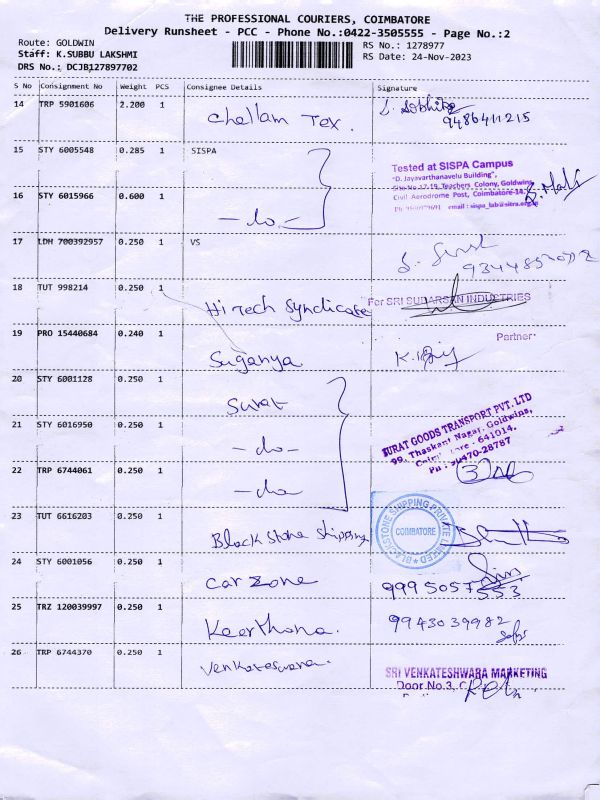 THE PROFESSIONAL COURIERS, COIMBATORE
Delivery Runsheet - PCC - Phone No.:0422-3505555 - Page No.:2
Route: GOLDWIN
RS No.: 1278977
Staff: K.SUBBU LAKSHMI
RS Date: 24-Nov-2023
DRS No.: DCJB127897702
S No Consignment No Weight PCS Consignee Details Signature
14 TRP 5901606 2.200 1 Chellam Tex.
9486411215
15 STY 6005548 0.285 1 SISPA
Tested at SISPA Campus
"D. Jayavarthanavelu Building",
Site No 17-19, Teachers Colony, Goldwins,
Civil Aerodrome Post, Coimbatore-14.
16 STY 6015966 0.600 1 -do-
17 LDH 700392957 0.250 1 VS
18 TUT 998214 0.250 1 Hi Tech Syndicate
For SRI SUDARSAN INDUSTRIES
Partner
19 PRO 15440684 0.240 1 Suganya
20 STY 6001128 0.250 1 Surat
21 STY 6016950 0.250 1 -do-
SURAT GOODS TRANSPORT PVT. LTD
99, Thaskant Nagar, Goldwins,
641014.
22 TRP 6744061 0.250 1 -do-
23 TUT 6616203 0.250 1 Black stone shipping
BLACKSTONE SHIPPING PRIVATE LIMITED
COIMBATORE
24 STY 6001056 0.250 1 Car zone
9995057553
25 TRZ 120039997 0.250 1 Keerthana.
9943039982
26 TRP 6744370 0.250 1 Venkateswara.
SRI VENKATESHWARA MARKETING
Door No.3,